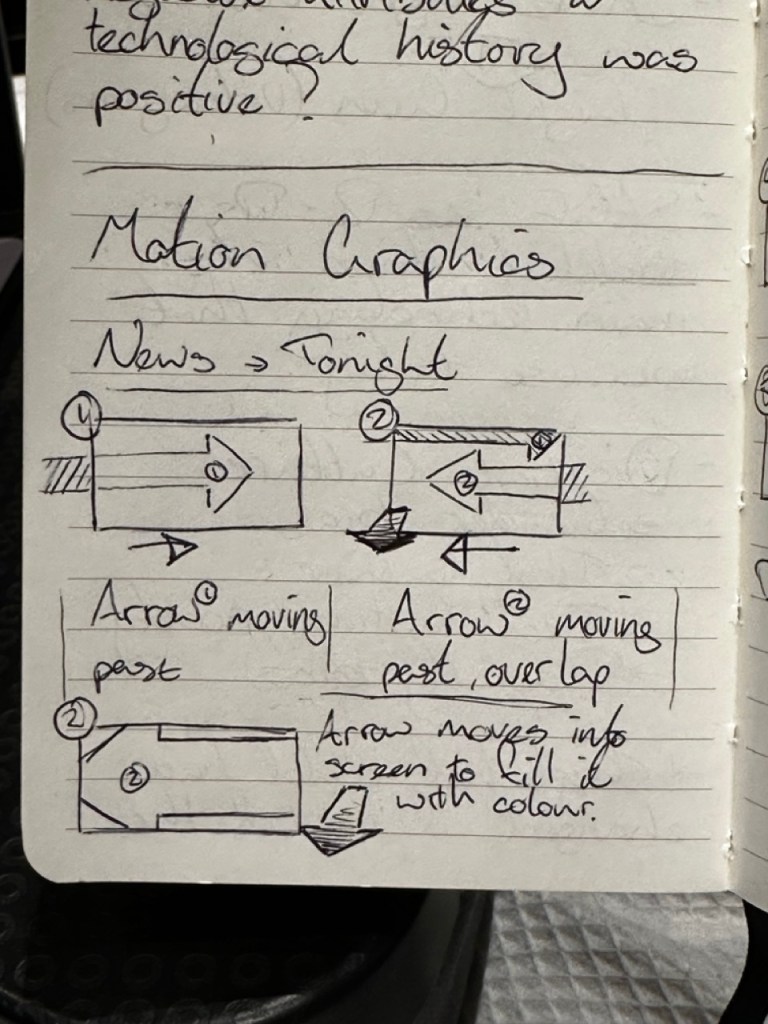 technological history was
positive?
Motion Graphics
News → Tonight
①
①
②
①
②
Arrow① moving
past
Arrow② moving
past, overlap
②
②
Arrow moves into
screen to fill it
with colour.